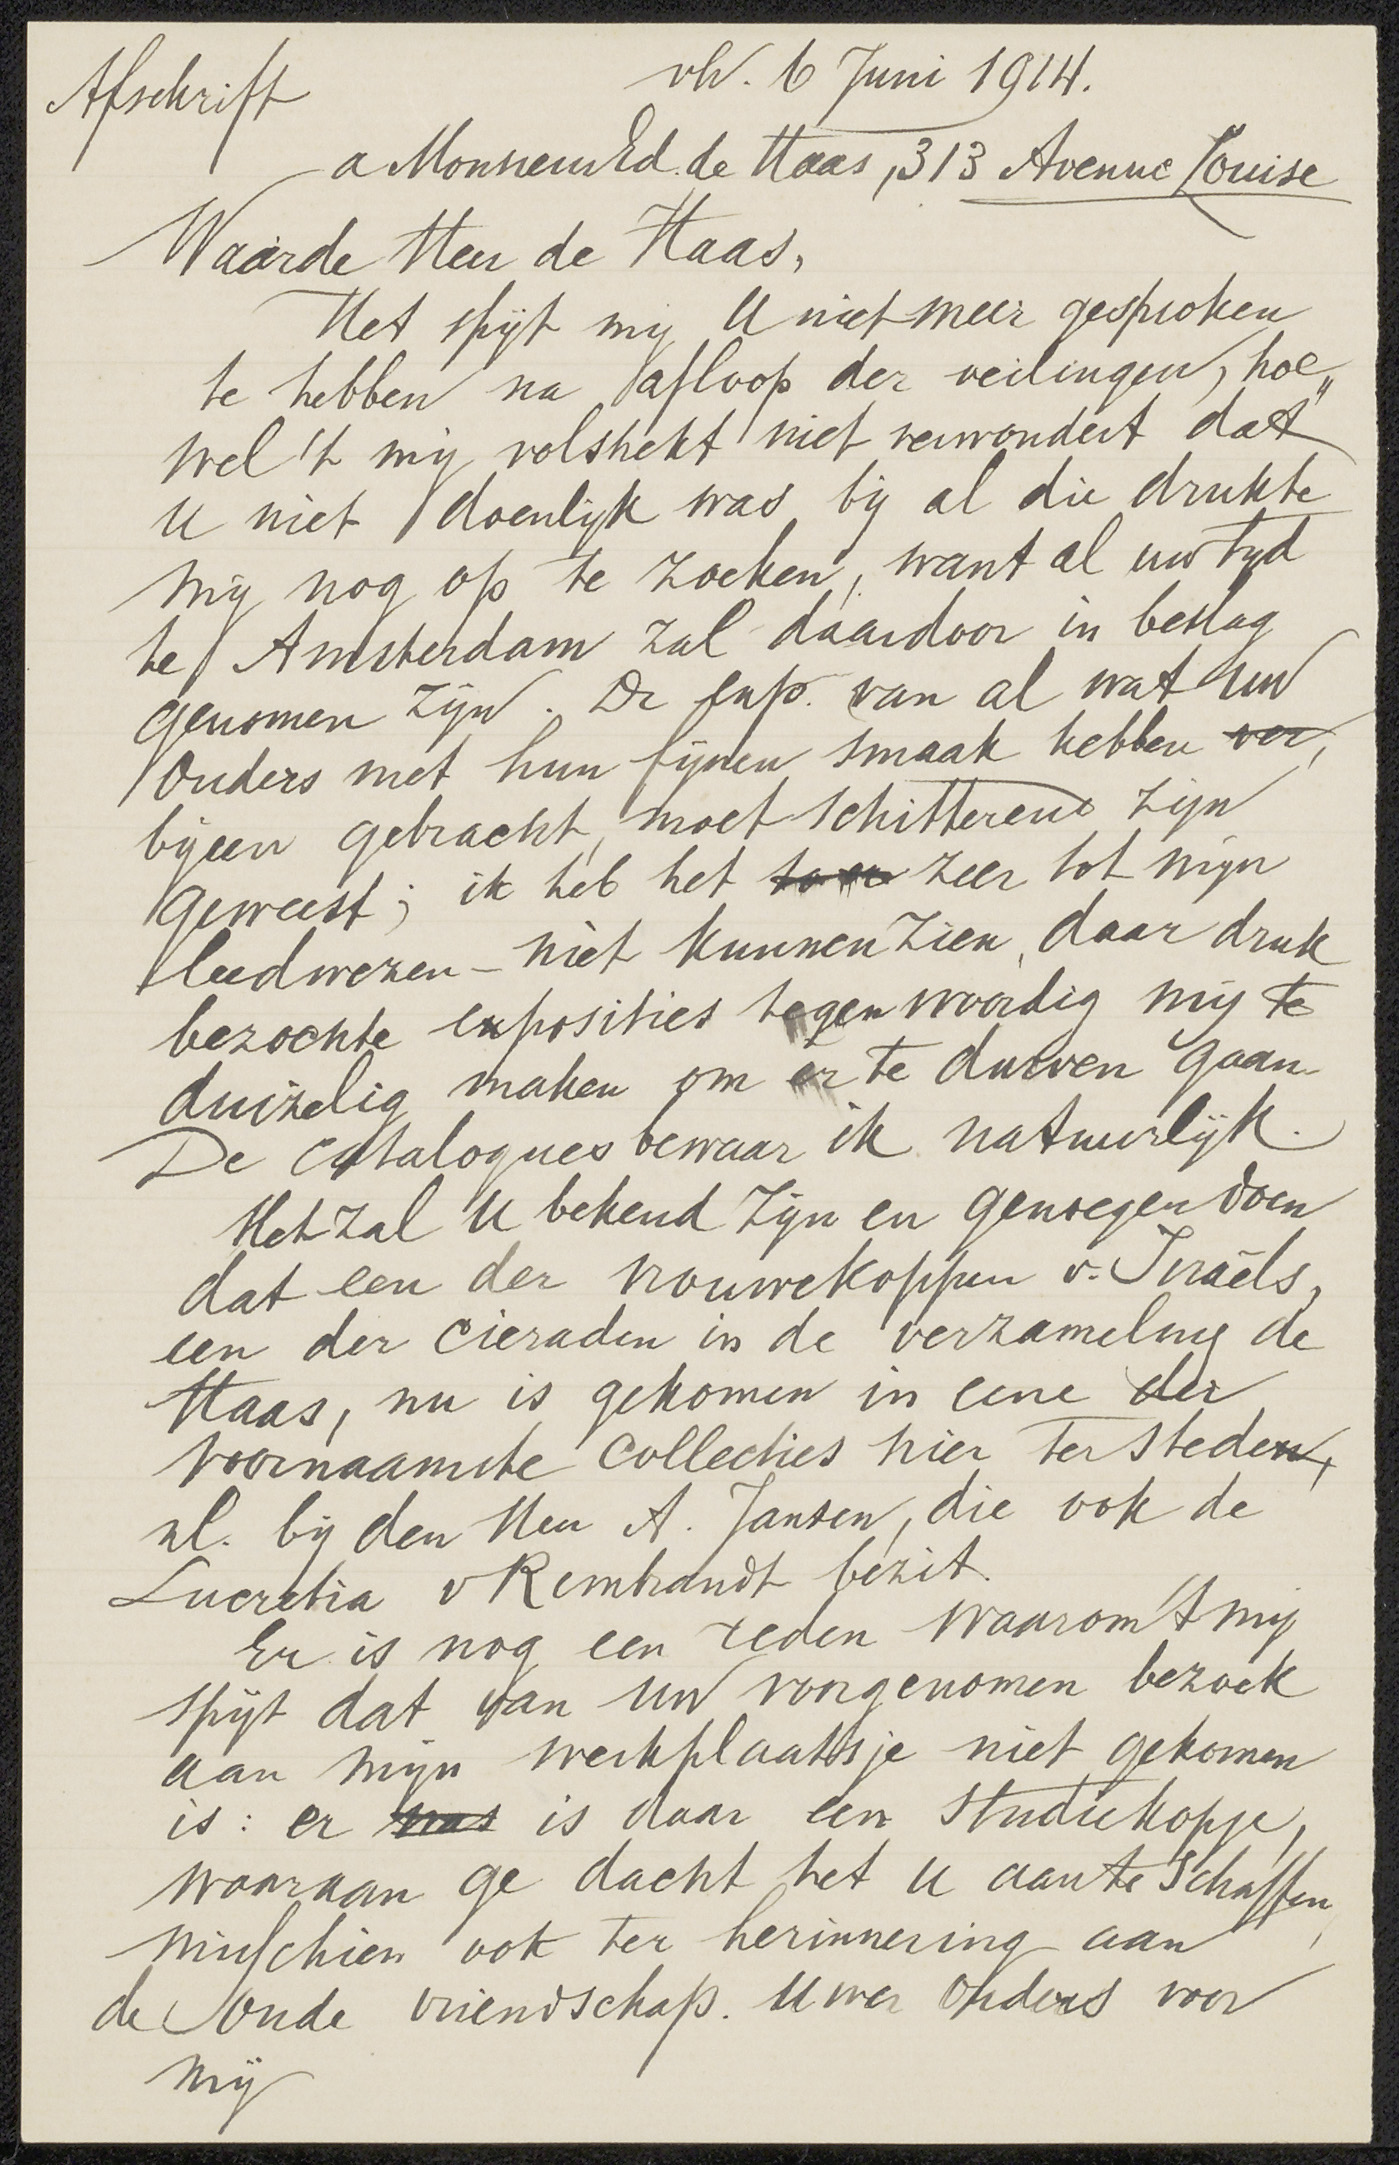 Afschrift
vh. 6 Juni 1914.
a Monsieur Ed. de Haas, 313 Avenue Louise
Waarde Heer de Haas,
Het spijt mij U niet meer gesproken
te hebben na afloop der veilingen, hoe„
wel 't mij volstrekt niet verwondert dat "
u niet doenlijk was bij al die drukte
mij nog op te zoeken, want al uw tijd
te Amsterdam zal daardoor in beslag
genomen zijn. De exp. van al wat uw
Ouders met hun fijnen smaak hebben ver,
bijeen gebracht, moet schitterend zijn
geweest; ik heb het zeer tot mijn
leedwezen – niet kunnen zien, daar druk
bezochte exposities tegenwoordig mij te
duizelig maken om er te durven gaan.
De catalogues bewaar ik natuurlijk.
Het zal U bekend zijn en genoegen doen
dat een der vrouwekoppen v. Israëls,
een der cieraden in de verzameling de
Haas, nu is gekomen in eene der
voornaamste collecties hier ter steden,
nl. bij den Heer A. Jansen, die ook de
Lucretia v Rembrandt bezit.
Er is nog een reden waarom 't mij
spijt dat van uw voorgenomen bezoek
aan mijn werkplaatsje niet gekomen
is: er was is daar een studiekopje,
waaraan ge dacht het u aan te schaffen,
misschien ook ter herinnering aan
de oude vriendschap. Uwer Ouders voor
mij